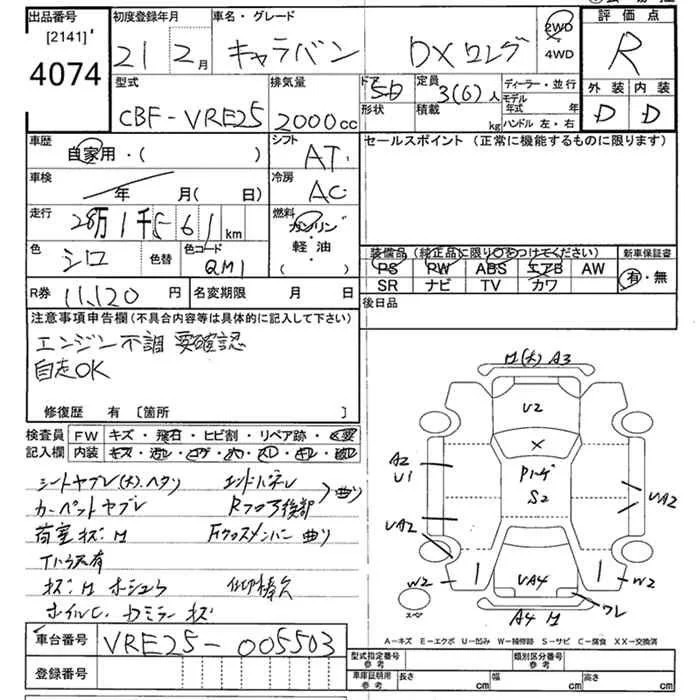 出品番号 初度登録年月 車名・グレード 評価点
[2141] 21 2月 キャラバン DXロング 2WD 4WD R
4074
型式 排気量 ドア 定員 ディーラー・並行 外装 内装
CBF-VRE25 2000cc 5D 3(6)人 モデル年式 年 D D
形状 積載 kg ハンドル 左・右
車歴 シフト セールスポイント (正常に機能するものに限ります)
自家用・( ) AT
車検 冷房
年 月( 日) AC
走行 燃料
28万1千561km ガソリン・軽油・( )
色 色替 色コード 装備品(純正品に限り○をつけてください) 新車保証書
シロ QM1 PS PW ABS エアB AW 有・無
SR ナビ TV カワ
R券 11,120円 名変期限 月 日 後日品
注意事項申告欄(不具合内容等は具体的に記入して下さい)
エンジン不調 要確認
自走OK
修復歴 有 [箇所 ]
検査員 FW キズ・飛石・ヒビ割・リペア跡・
記入欄 内装
シートヤブレ(大)、ヘタリ エンドパネル
カーペットヤブレ Rフロア 曲り
荷室キズ・M Fクロスメンバー 曲り
キズ・M
ホイルC、 ミラーキズ
M(大) A3
U2
X
Pトーゲ
S2
A2
U1
UA2
UA2
W2
UA4
W2
ワレ
A4 M
スペア
A-キズ E-エクボ U-凹み W-補修跡 S-サビ C-腐食 XX-交換済
車台番号 VRE25-005503
登録番号
型式指定番号 参考 類別区分番号 参考
車庫証明用 参考 長さ cm 幅 cm 高さ cm